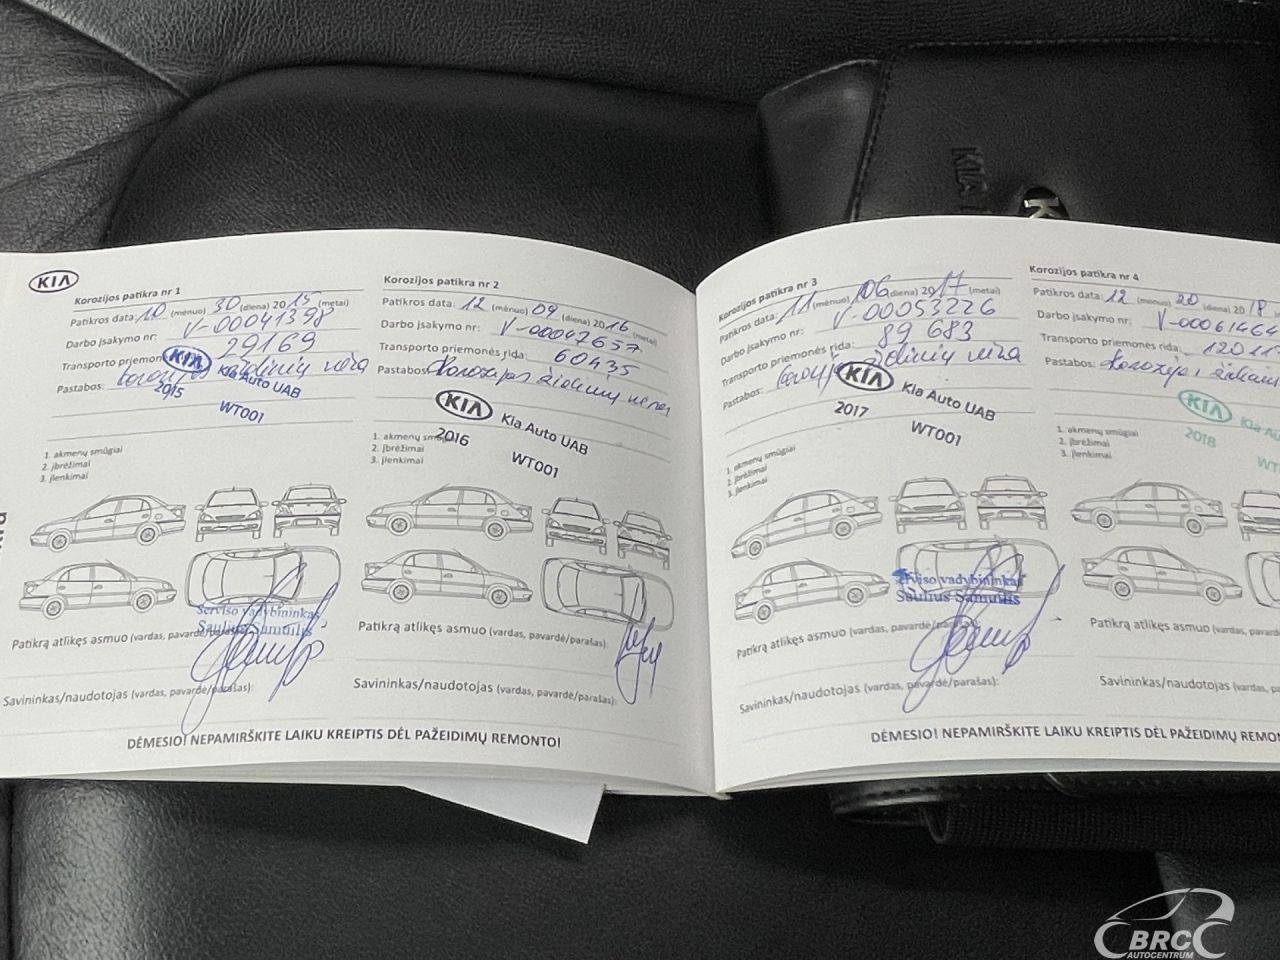 KIA
Korozijos patikra nr 1
Patikros data: 10 (mėnuo) 30 (diena) 2015 (metai)
Darbo įsakymo nr: V-00041398
Transporto priemon 29169
Pastabos: židinių nėra
KIA Kia Auto UAB
2015 WT001
1. akmenų smūgiai
2. įbrėžimai
3. įlenkimai
Serviso vadybininkas
Saulius Samuilis
Patikrą atlikęs asmuo (vardas, pavardė/parašas):
Savininkas/naudotojas (vardas, pavardė/parašas):
Korozijos patikra nr 2
Patikros data: 12 (mėnuo) 09 (diena) 2016 (metai)
Darbo įsakymo nr: V-00047657
Transporto priemonės rida: 60435
Pastabos: Korozijos židinių nėra
KIA Kia Auto UAB
2016 WT001
1. akmenų smūgiai
2. įbrėžimai
3. įlenkimai
Patikrą atlikęs asmuo (vardas, pavardė/parašas):
Savininkas/naudotojas (vardas, pavardė/parašas):
DĖMESIO! NEPAMIRŠKITE LAIKU KREIPTIS DĖL PAŽEIDIMŲ REMONTO!
Korozijos patikra nr 3
Patikros data: 11 (mėnuo) 06 (diena) 2017 (metai)
Darbo įsakymo nr: V-00053226
Transporto priemonės rida: 89 683
Pastabos: židinių nėra
KIA Kia Auto UAB
2017 WT001
1. akmenų smūgiai
2. įbrėžimai
3. įlenkimai
Serviso vadybininkas
Saulius Samuilis
Patikrą atlikęs asmuo (vardas, pavardė/parašas):
Savininkas/naudotojas (vardas, pavardė/parašas):
Korozijos patikra nr 4
Patikros data: 12 (mėnuo) 20 (diena) 2018
Darbo įsakymo nr: V-00061464
Transporto priemonės rida:
Pastabos: Korozijos
KIA Kia Au
2018 WT
1. akmenų smūgiai
2. įbrėžimai
3. įlenkimai
Patikrą atlikęs asmuo (vardas,
Savininkas/naudotojas (vardas,
DĖMESIO! NEPAMIRŠKITE LAIKU KREIPTIS DĖL PAŽEIDIMŲ REMON
KIA
BRC
AUTOCENTRUM